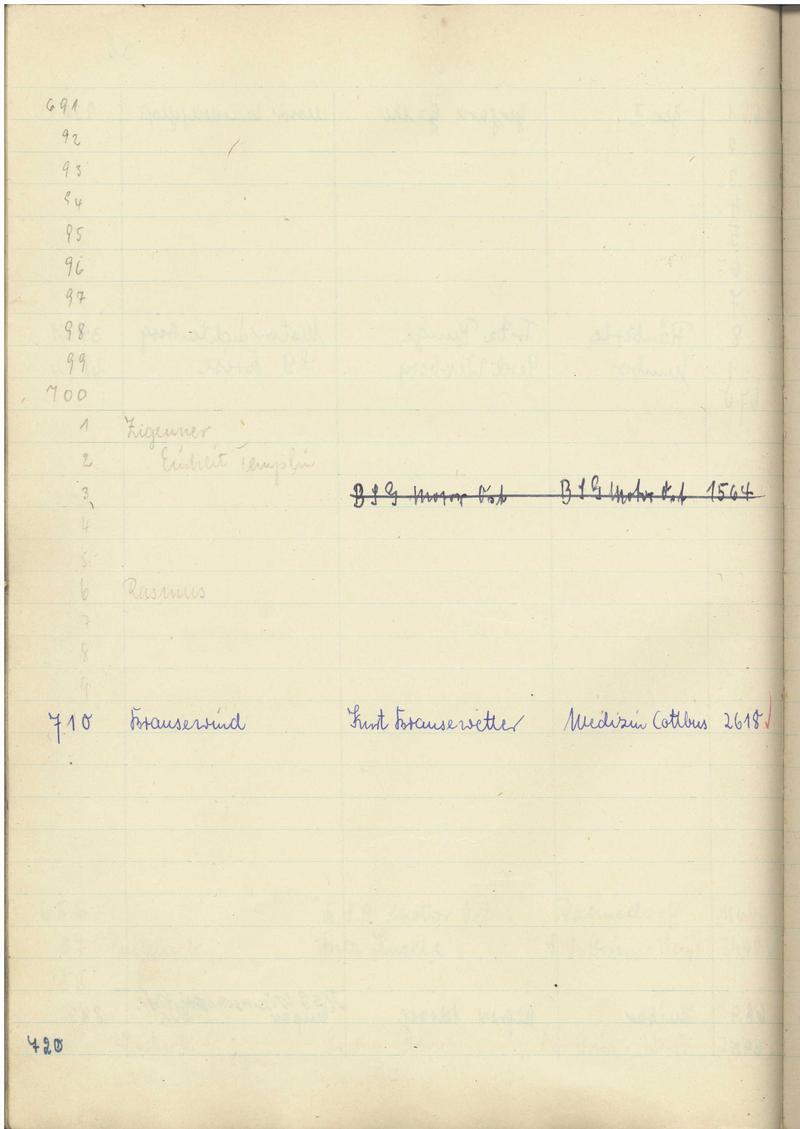 691
92
93
94
95
96
97
98
99
700
1 Zigeuner
2 Einheit Templin
3 BSG Motor Ost BSG Motor Ost 1564
4
5
6 Rasmus
7
8
9
710 Brausewind Kurt Brausewetter Medizin Cottbus 2618
720